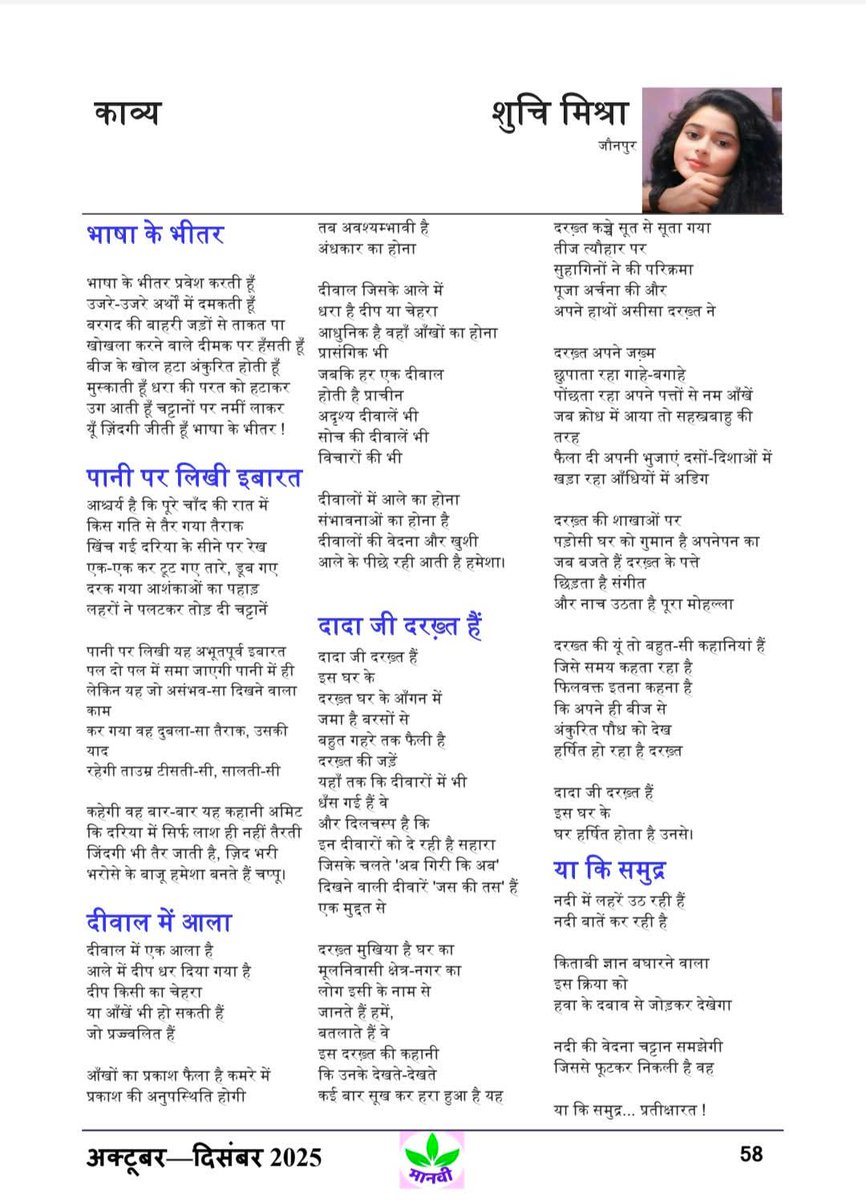 काव्य
शुचि मिश्रा
जौनपुर
भाषा के भीतर
भाषा के भीतर प्रवेश करती हूँ
उजरे-उजरे अर्थों में दमकती हूँ
बरगद की बाहरी जड़ों से ताकत पा
खोखला करने वाले दीमक पर हँसती हूँ
बीज के खोल हटा अंकुरित होती हूँ
मुस्काती हूँ धरा की परत को हटाकर
उग आती हूँ चट्टानों पर नमीं लाकर
यूँ ज़िंदगी जीती हूँ भाषा के भीतर !
पानी पर लिखी इबारत
आश्चर्य है कि पूरे चाँद की रात में
किस गति से तैर गया तैराक
खिंच गई दरिया के सीने पर रेख
एक-एक कर टूट गए तारे, डूब गए
दरक गया आशंकाओं का पहाड़
लहरों ने पलटकर तोड़ दी चट्टानें
पानी पर लिखी यह अभूतपूर्व इबारत
पल दो पल में समा जाएगी पानी में ही
लेकिन यह जो असंभव-सा दिखने वाला
काम
कर गया वह दुबला-सा तैराक, उसकी
याद
रहेगी ताउम्र टीसती-सी, सालती-सी
कहेगी वह बार-बार यह कहानी अमिट
कि दरिया में सिर्फ लाश ही नहीं तैरती
जिंदगी भी तैर जाती है, ज़िद भरी
भरोसे के बाजू हमेशा बनते हैं चप्पू।
दीवाल में आला
दीवाल में एक आला है
आले में दीप धर दिया गया है
दीप किसी का चेहरा
या आँखें भी हो सकती हैं
जो प्रज्वलित हैं
आँखों का प्रकाश फैला है कमरे में
प्रकाश की अनुपस्थिति होगी
तब अवश्यम्भावी है
अंधकार का होना
दीवाल जिसके आले में
धरा है दीप या चेहरा
आधुनिक है वहाँ आँखों का होना
प्रासंगिक भी
जबकि हर एक दीवाल
होती है प्राचीन
अदृश्य दीवालें भी
सोच की दीवालें भी
विचारों की भी
दीवालों में आले का होना
संभावनाओं का होना है
दीवालों की वेदना और खुशी
आले के पीछे रही आती है हमेशा।
दादा जी दरख़्त हैं
दादा जी दरख़्त हैं
इस घर के
दरख़्त घर के आँगन में
जमा है बरसों से
बहुत गहरे तक फैली है
दरख़्त की जड़ें
यहाँ तक कि दीवारों में भी
धँस गई हैं वे
और दिलचस्प है कि
इन दीवारों को दे रही है सहारा
जिसके चलते 'अब गिरी कि अब'
दिखने वाली दीवारें 'जस की तस' हैं
एक मुद्दत से
दरख़्त मुखिया है घर का
मूलनिवासी क्षेत्र-नगर का
लोग इसी के नाम से
जानते हैं हमें,
बतलाते हैं वे
इस दरख़्त की कहानी
कि उनके देखते-देखते
कई बार सूख कर हरा हुआ है यह
दरख़्त कच्चे सूत से सूता गया
तीज त्यौहार पर
सुहागिनों ने की परिक्रमा
पूजा अर्चना की और
अपने हाथों असीसा दरख़्त ने
दरख़्त अपने जख़्म
छुपाता रहा गाहे-बगाहे
पोंछता रहा अपने पत्तों से नम आँखें
जब क्रोध में आया तो सहस्त्रबाहु की
तरह
फैला दी अपनी भुजाएं दसों-दिशाओं में
खड़ा रहा आँधियों में अडिग
दरख़्त की शाखाओं पर
पड़ोसी घर को गुमान है अपनेपन का
जब बजते हैं दरख़्त के पत्ते
छिड़ता है संगीत
और नाच उठता है पूरा मोहल्ला
दरख्त की यूं तो बहुत-सी कहानियां हैं
जिसे समय कहता रहा है
फिलवक्त इतना कहना है
कि अपने ही बीज से
अंकुरित पौध को देख
हर्षित हो रहा है दरख़्त
दादा जी दरख़्त हैं
इस घर के
घर हर्षित होता है उनसे।
या कि समुद्र
नदी में लहरें उठ रही हैं
नदी बातें कर रही है
किताबी ज्ञान बघारने वाला
इस क्रिया को
हवा के दबाव से जोड़कर देखेगा
नदी की वेदना चट्टान समझेगी
जिससे फूटकर निकली है वह
या कि समुद्र... प्रतीक्षारत !
अक्टूबर—दिसंबर 2025
मानवी
58